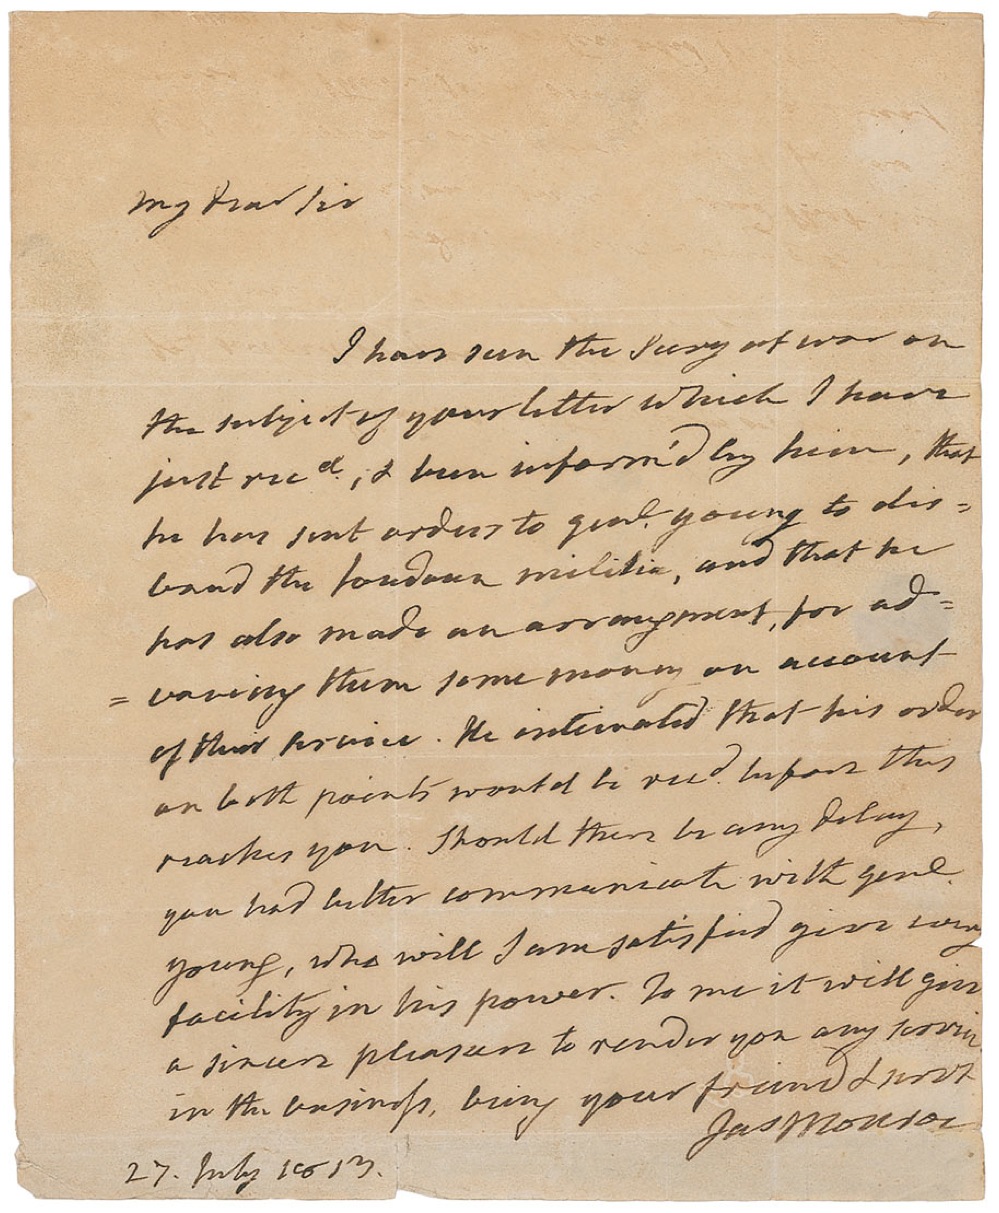 My Dear Sir
I have seen the Secry of war on
the subject of your letter which I have
just recd., & been inform'd by him, that
he has sent orders to genl. young to dis=
band the loudoun militia, and that he
has also made an arrangement, for ad=
=vancing them some money on account
of their service. He intimated that his order
on both points would be recd. before this
reaches you. Should there be any delay,
you had better communicate with genl.
young, who will I am satisfied give every
facility in his power. To me it will give
a sincere pleasure to render you any service
in the business, being your friend & servt
Jas Monroe
27. July 1813.